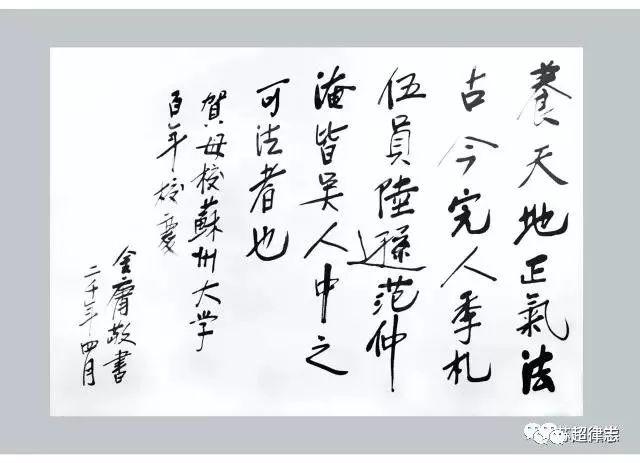 養天地正氣法
古今完人季札
伍員陸遜范仲
淹皆吳人中之
可法者也
賀母校蘇州大学
百年校慶
金庸敬書
二千年四月
苏超律志